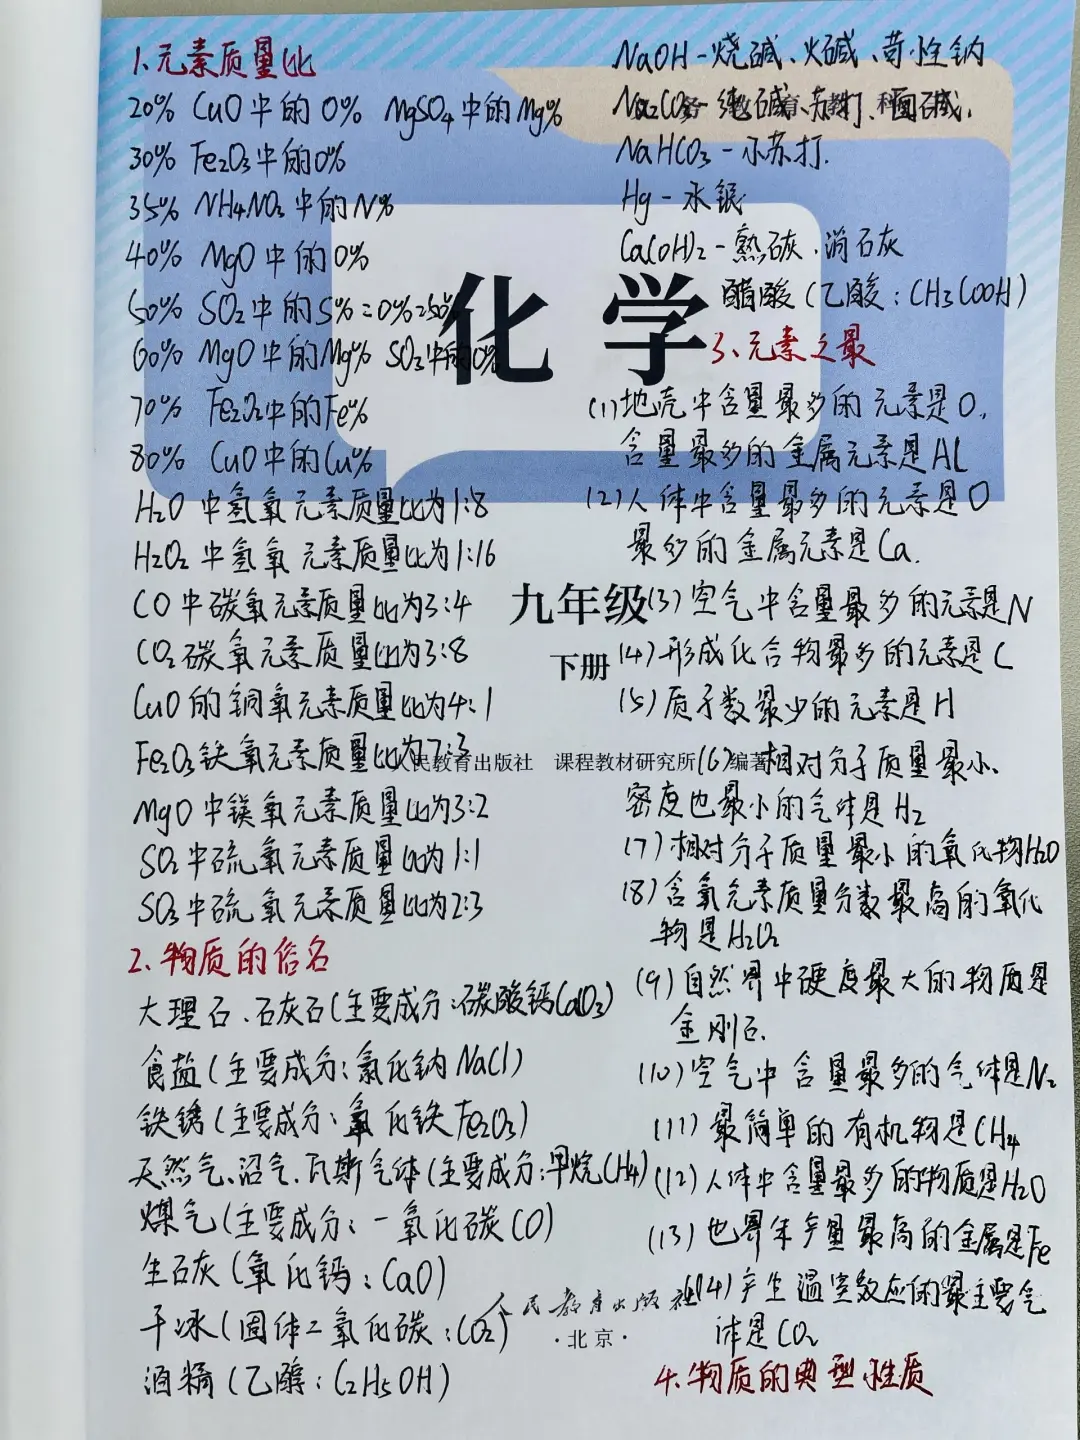 1、元素质量比
20% CuO中的O% MgSO4中的Mg%
30% Fe2O3中的O%
35% NH4NO3中的N%
40% MgO中的O%
50% SO2中的S%=O%=50%
60% MgO中的Mg% SO3中的O%
70% Fe2O3中的Fe%
80% CuO中的Cu%
H2O中氢氧元素质量比为1:8
H2O2中氢氧元素质量比为1:16
CO中碳氧元素质量比为3:4
CO2碳氧元素质量比为3:8
CuO的铜氧元素质量比为4:1
Fe2O3铁氧元素质量比为7:3
MgO中镁氧元素质量比为3:2
SO2中硫氧元素质量比为1:1
SO3中硫氧元素质量比为2:3
2、物质的俗名
大理石、石灰石(主要成分:碳酸钙CaCO3)
食盐(主要成分:氯化钠NaCl)
铁锈(主要成分:氧化铁Fe2O3)
天然气、沼气、瓦斯气体(主要成分:甲烷CH4)
煤气(主要成分:一氧化碳CO)
生石灰(氧化钙:CaO)
干冰(固体二氧化碳:CO2)
酒精(乙醇:C2H5OH)
NaOH-烧碱、火碱、苛性钠
Na2CO3-纯碱、苏打、
NaHCO3-小苏打.
Hg-水银
Ca(OH)2-熟石灰、消石灰
醋酸(乙酸:CH3COOH)
3、元素之最
(1)地壳中含量最多的元素是O,
含量最多的金属元素是Al
(2)人体中含量最多的元素是O
最多的金属元素是Ca.
(3)空气中含量最多的元素是N
(4)形成化合物最多的元素是C
(5)质子数最少的元素是H
(6)相对分子质量最小、
密度也最小的气体是H2
(7)相对分子质量最小的氧化物H2O
(8)含氧元素质量分数最高的氧化
物是H2O2
(9)自然界中硬度最大的物质是
金刚石.
(10)空气中含量最多的气体是N2
(11)最简单的有机物是CH4
(12)人体中含量最多的物质是H2O
(13)世界年产量最高的金属是Fe
(14)产生温室效应的最主要气
体是CO2
4、物质的典型性质
化学
九年级
下册
人民教育出版社 课程教材研究所 编著
人民教育出版社
·北京·